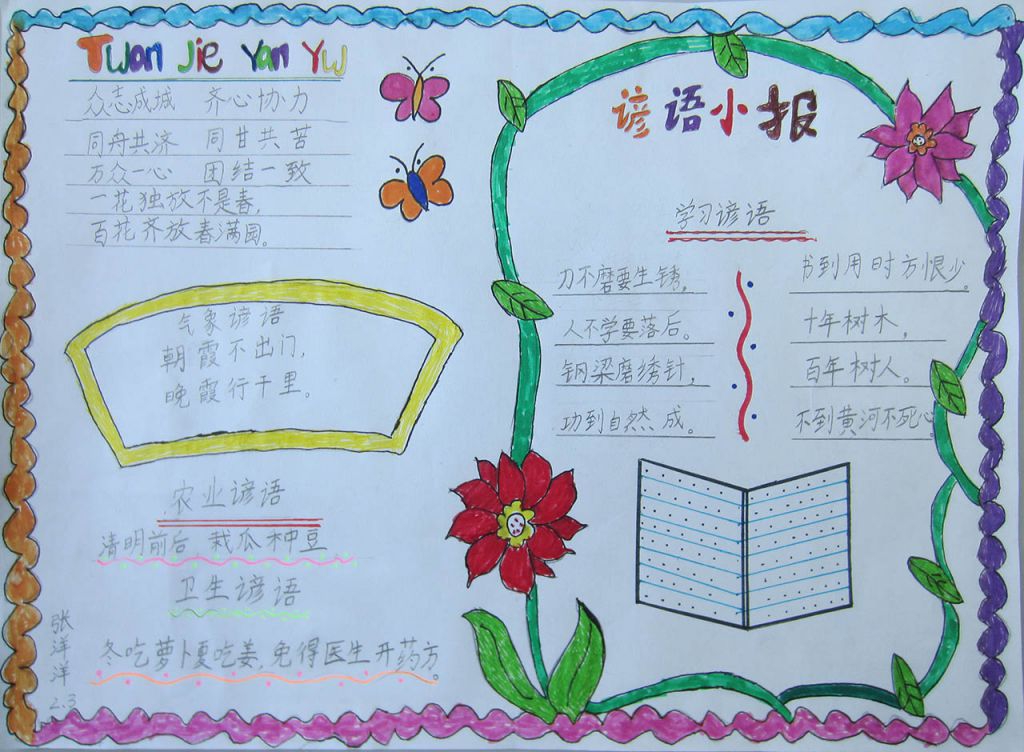 Twan Jie Yan Yw
众志成城 齐心协力
同舟共济 同甘共苦
万众一心 团结一致
一花独放不是春,
百花齐放春满园。
气象谚语
朝霞不出门,
晚霞行千里。
农业谚语
清明前后 栽瓜种豆
卫生谚语
冬吃萝卜夏吃姜,免得医生开药方。
张洋洋
2.3
谚语小报
学习谚语
刀不磨要生锈,
人不学要落后。
钢梁磨绣针,
功到自然成。
书到用时方恨少。
十年树木,
百年树人。
不到黄河不死心